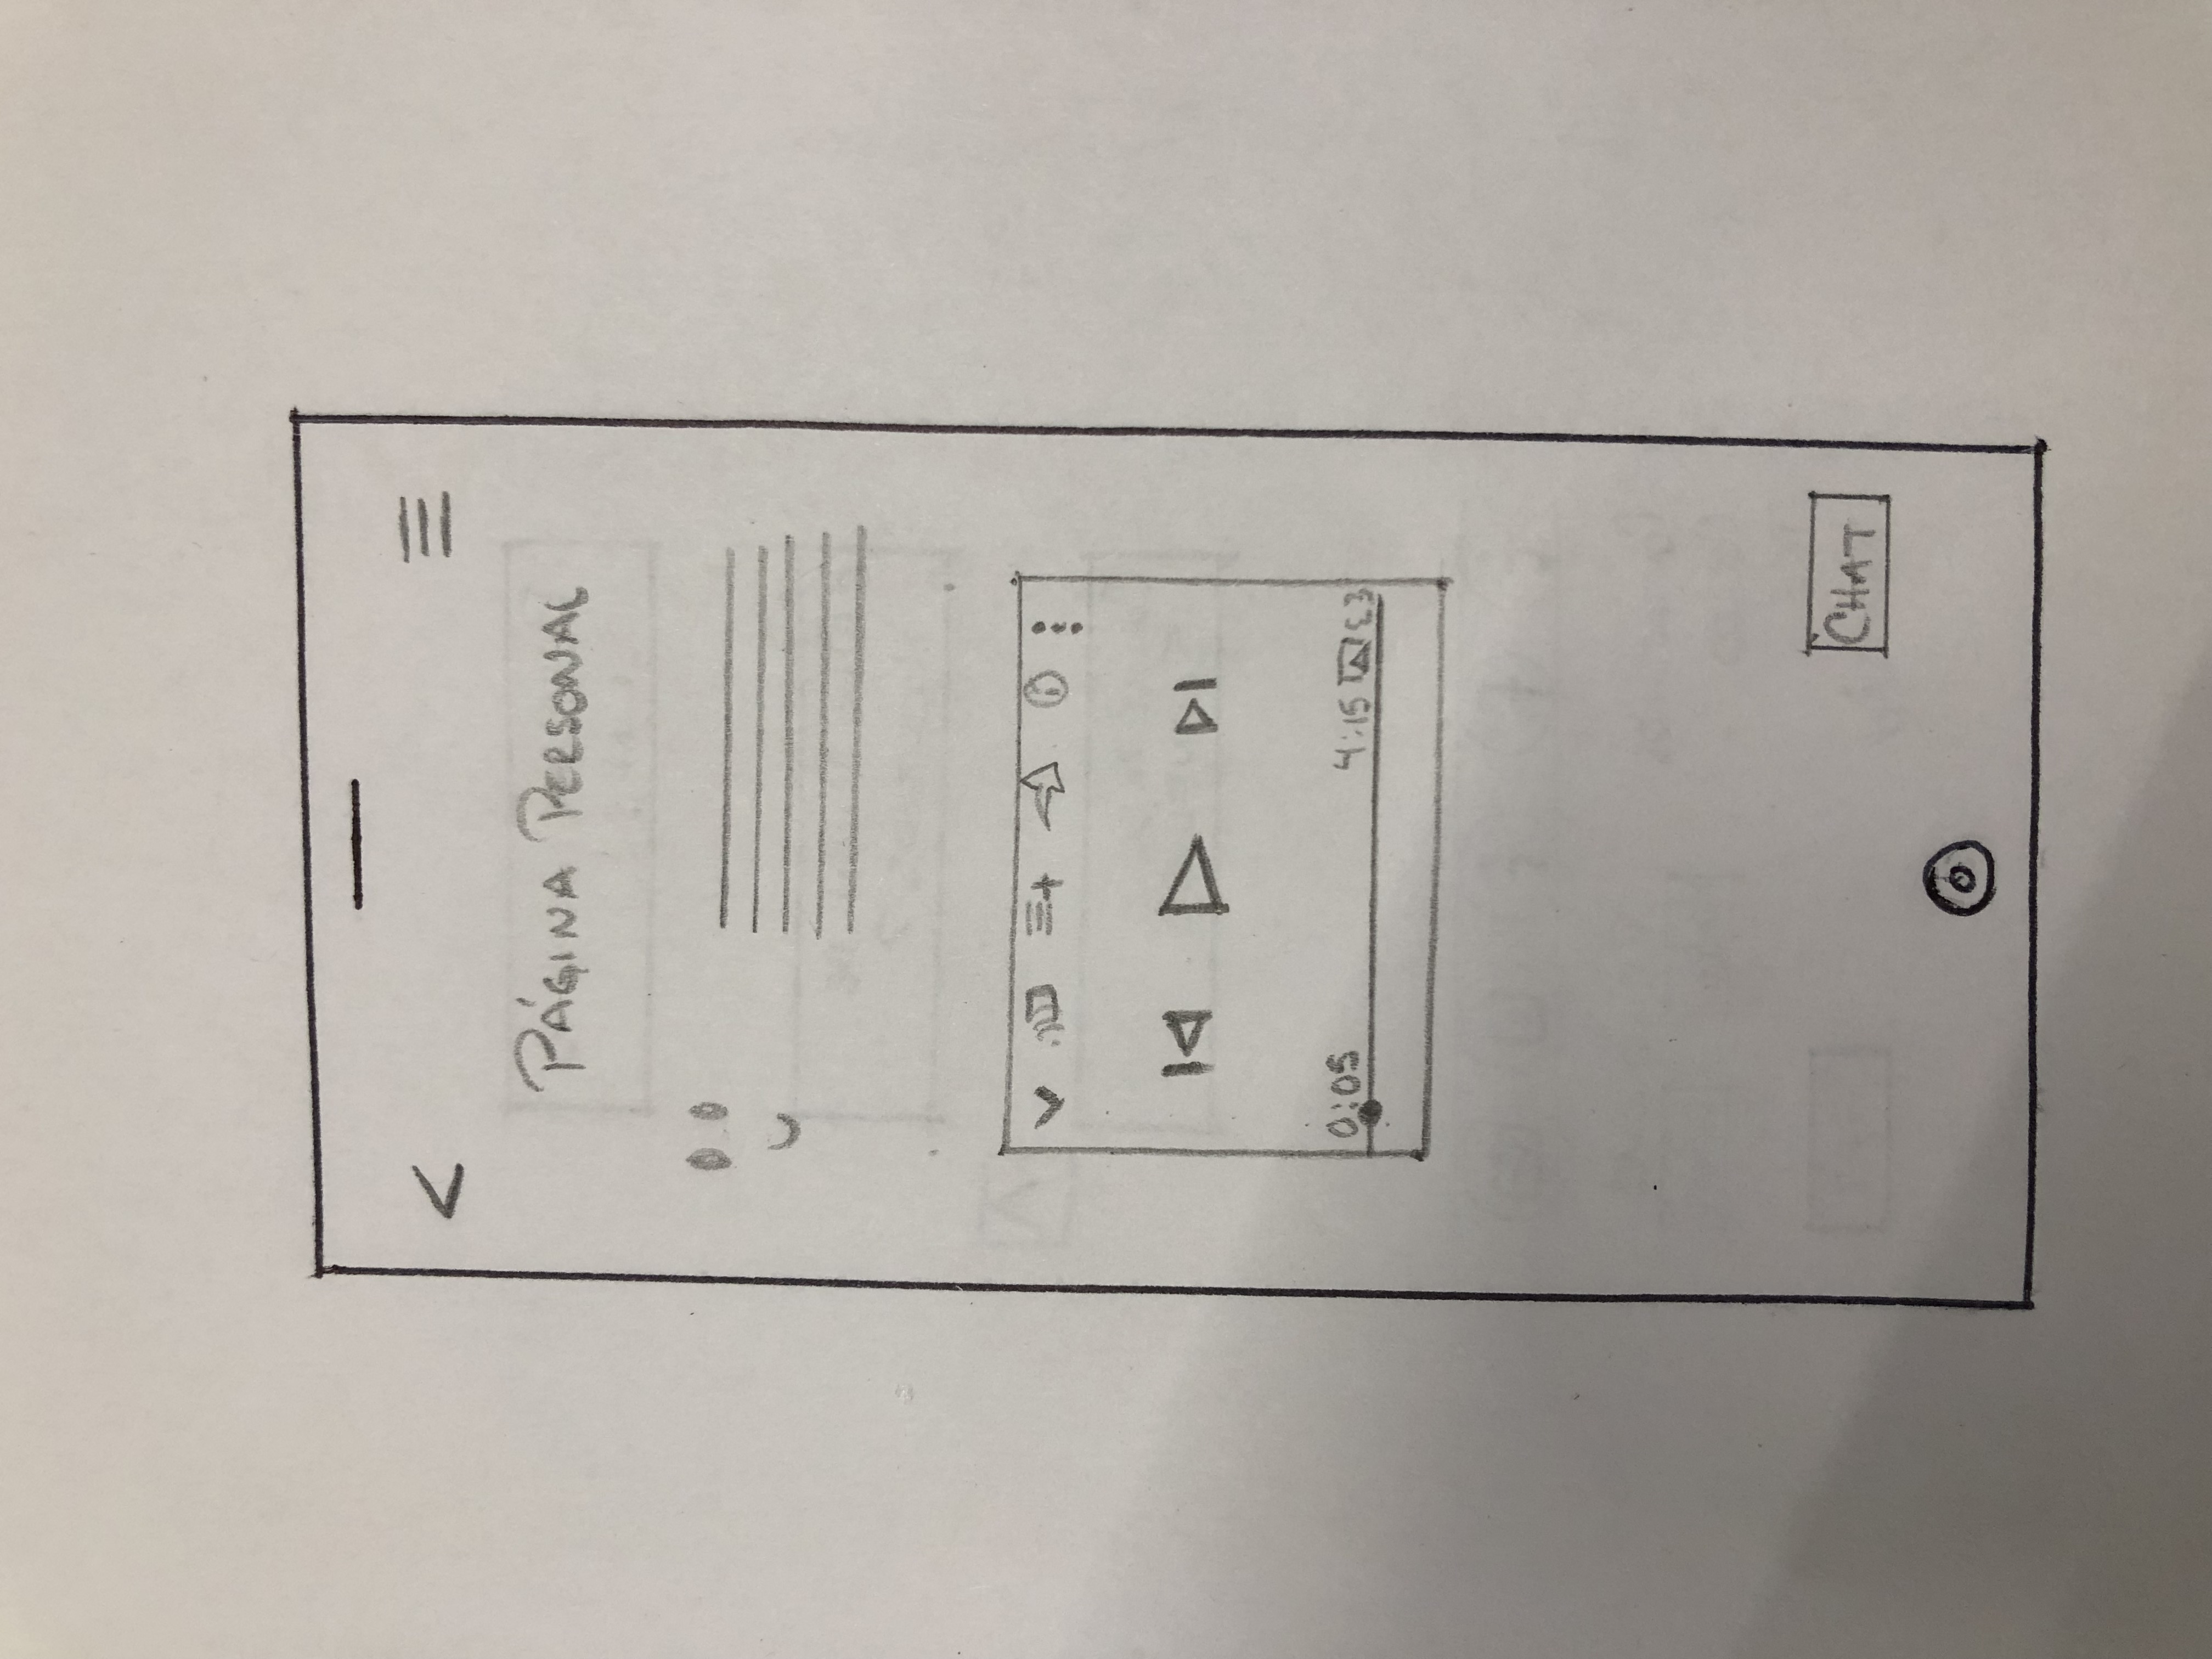 PÁGINA PERSONAL
0:05 4:15
CHAT